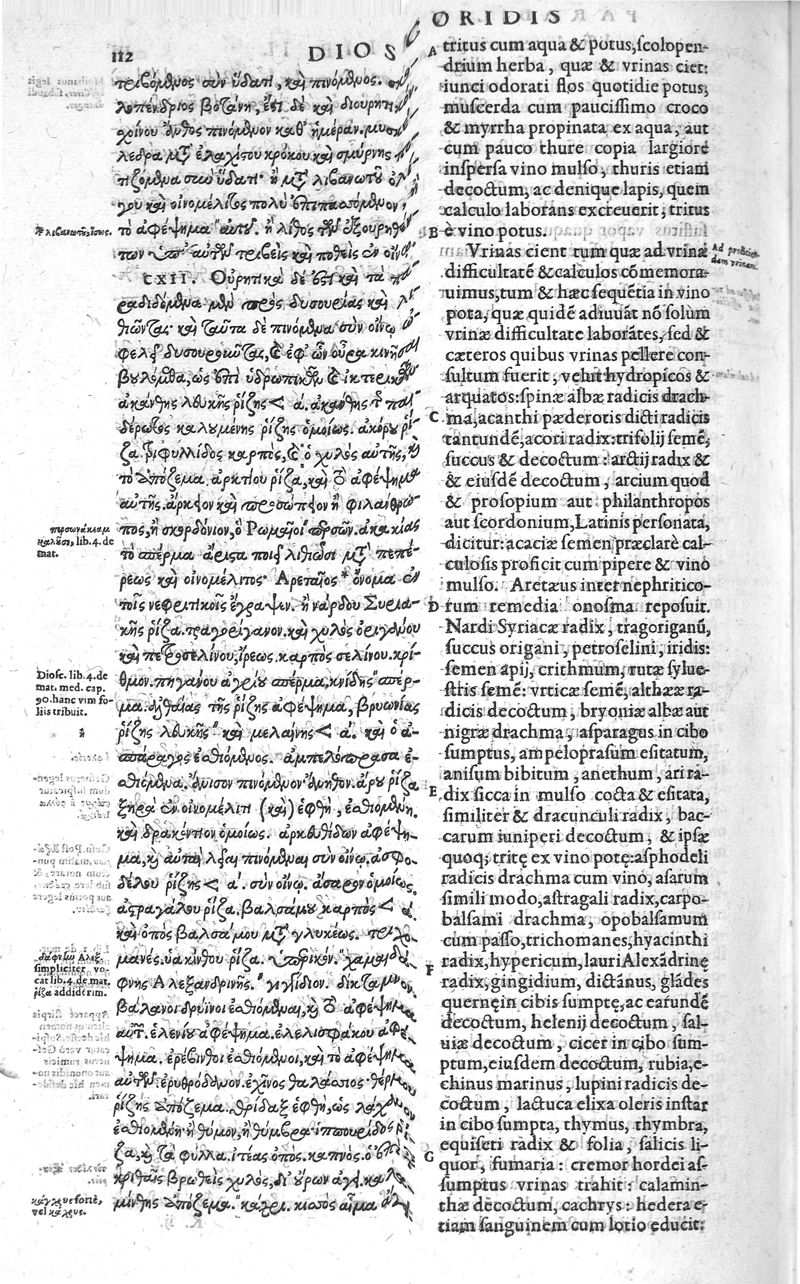 112
DIOSC
ORIDIS
τριβόμενος σὺν ὕδατι, καὶ πινόμενος.
λοπένδριος βοτάνη, ἔστι δὲ καὶ διουρητι
χοίνου ἄνθος πινόμενον καθ' ἡμέραν. μυο
λεδρα μετ' ἐλαχίστου κρόκου καὶ σμύρνης
τιζόμενα σὺν ὕδατι· ἢ μετὰ λιβανωτοῦ ὀλ
γου καὶ οἰνομέλιτος πολὺ ἐπιπασσόμενον,
τὸ ἀφέψημα αὐτοῦ. ἢ λίθος τῶν ἐξουρηθέν
των ὑπ' αὐτῶν τριβεὶς καὶ ποθεὶς ἐν οἴνῳ
CXII. Οὐρητικὰ δέ ἐστι καὶ τὰ πα
ραδιδόμενα μὲν πρὸς δυσουρίας καὶ λι
θιῶντας· καὶ ταῦτα δὲ πινόμενα σὺν οἴνῳ
φελεῖ δυσουροῦντας, καὶ ἐφ' ὧν οὖρα κινῆσαι
βουλόμεθα, ὡς ἐπὶ ὑδρωπικῶν καὶ ἰκτερικῶν
ἀκάνθης λευκῆς ῥίζης < α. ἀκάνθης τῆς παι
δέρωτος καλουμένης ῥίζης ὁμοίως. ἀκόρου ῥί
ζα. τριφυλλίδος καρπὸς, καὶ ὁ χυλὸς αὐτῆς, καὶ
τὸ ἀπόζεμα. ἀρκτίου ῥίζα, καὶ τὸ ἀφέψημα
αὐτῆς. ἄρκιον καὶ προσώπιον ἢ φιλάνθρω
πος, ἢ σκορδόνιον, ὃ Ῥωμαῖοι περσῶν. ἀκακίας
τὸ σπέρμα ἄριστα ποιεῖ λιθιῶσι μετὰ πεπέ-
ρεως καὶ οἰνομέλιτος· Ἀρεταῖος * ὄνομα ἐν
τοῖς νεφριτικοῖς ἔγραψεν. ἢ νάρδου Συρια-
κῆς ῥίζα. τραγορίγανον. καὶ χυλὸς ὀριγάνου
καὶ πετροσελίνου, ἴρεως. καρπὸς σελίνου. κρί-
θμον. πηγάνου ἀγρίου σπέρμα, κνίδης σπέρ-
μα. ἀλθαίας τῆς ῥίζης ἀφέψημα, βρυωνίας
ῥίζης λευκῆς καὶ μελαίνης < α. καὶ ὁ ἀ-
σπάραγος ἐσθιόμενος. ἀμπελόπρασα ἐ-
σθιόμενα. ἄνισον πινόμενον· ἄνηθον. ἄρου ῥίζα
ξηρὰ ἐν οἰνομέλιτι (καὶ) ἑφθὴ, ἐσθιομένη.
καὶ δρακόντιον ὁμοίως. ἀρκευθίδων ἀφέψη-
μα, καὶ αὐταὶ λεῖαι πινόμεναι σὺν οἴνῳ. ἀσφο-
δέλου ῥίζης < α. σὺν οἴνῳ. ἄσαρον ὁμοίως.
ἀστραγάλου ῥίζα. βαλσάμου καρπὸς < α.
καὶ ὀπὸς βαλσάμου μετὰ γλυκέως. τριχο-
μανές. ὑακίνθου ῥίζα. ὑπερικόν. χαμαιδά
φνης Ἀλεξανδρίνης. γιγγίδιον. δίκταμνον
βάλανοι δρύϊνοι ἐσθιόμεναι, καὶ τὸ ἀφέψημα
αὐτῶν. ἑλενίου ἀφέψημα. ἐλελισφάκου ἀφέ-
ψημα. ἐρέβινθοι ἐσθιόμενοι, καὶ τὸ ἀφέψημα
αὐτῶν. ἐρυθρόδανον. ἐχῖνος θαλάσσιος· θέρμων
ῥίζης ἀπόζεμα. θρίδαξ ἑφθὴ, ὡς λάχανον
ἐσθιομένη· ἢ θύμον, ἢ θύμβρα· ἱππουρίδος ῥί
ζα, καὶ τὰ φύλλα. ἰτέας ὀπός. καπνός. ὁ ἀπὸ
κριθῆς βρωθεὶς χυλὸς, δι' οὔρων ἄγει. καλα
μίνθης ἀπόζεμα. κάχρι. κισσὸς αἷμα
tritus cum aqua & potus, scolopen-
drium herba, quæ & vrinas ciet:
iunci odorati flos quotidie potus,
muscerda cum paucissimo croco
& myrrha propinata ex aqua, aut
cum pauco thure copia largiore
inspersa vino mulso, thuris etiam
decoctum, ac denique lapis, quem
calculo laborans excreuerit, tritus
è vino potus.
Vrinas cient tum quæ ad vrinæ
difficultatē & calculos cōmemora-
uimus, tum & hæc sequētia in vino
pota, quæ quidē adiuuāt nō solum
vrinæ difficultate laborātes, sed &
cæteros quibus vrinas pellere con-
sultum fuerit, velut hydropicos &
arquatos: spinæ albæ radicis drach-
ma, acanthi pæderotis dicti radicis
tantundē, acori radix: trifolij semē,
succus & decoctum: arctij radix &
& eiusdē decoctum, arcium quod
& prosopium aut philanthropos
aut scordonium, Latinis personata,
dicitur: acaciæ semen præclarè cal-
culosis proficit cum pipere & vino
mulso. Aretæus inter nephritico-
rum remedia onosma reposuit.
Nardi Syriacæ radix, tragoriganū,
succus origani, petroselini, iridis:
semen apij, crithmum, rutæ sylue-
stris semē: vrticæ semē, altheæ ra-
dicis decoctum, bryoniæ albæ aut
nigræ drachma, asparagus in cibo
sumptus, ampeloprasum esitatum,
anisum bibitum, anethum, ari ra-
dix sicca in mulso cocta & esitata,
similiter & dracunculi radix, bac-
carum iuniperi decoctum, & ipsæ
quoq; tritę ex vino potę: asphodeli
radicis drachma cum vino, asarum
simili modo, astragali radix, carpo-
balsami drachma, opobalsamum
cum passo, trichomanes, hyacinthi
radix, hypericum, lauri Alexādrinę
radix, gingidium, dictānus, glādes
quernęin cibis sumptę, ac earundē
decoctum, helenij decoctum, sal-
uiæ decoctum, cicer in cibo sum-
ptum, eiusdem decoctum, rubia, e-
chinus marinus, lupini radicis de-
coctum, lactuca elixa oleris instar
in cibo sumpta, thymus, thymbra,
equiseti radix & folia, salicis li-
quor, fumaria: cremor hordei as-
sumptus vrinas trahit: calamin-
thæ decoctum, cachrys: hedera e-
tiam sanguinem cum lotio educit:
A
B
C
D
E
F
G
Ad proficiē-
dam vrinam.
* λιβανωτὶς, ἴσως.
προσωπίς
καλοῦσι, lib. 4. de
mat.
Diosc. lib. 4. de
mat. med. cap.
90. hanc vim fo-
liis tribuit.
δάφνῳ Alex.
simpliciter vo-
cat lib. 4. de mat.
ῥίζα addiderim.
κάγχρυς fortè,
vel κάχρυς.